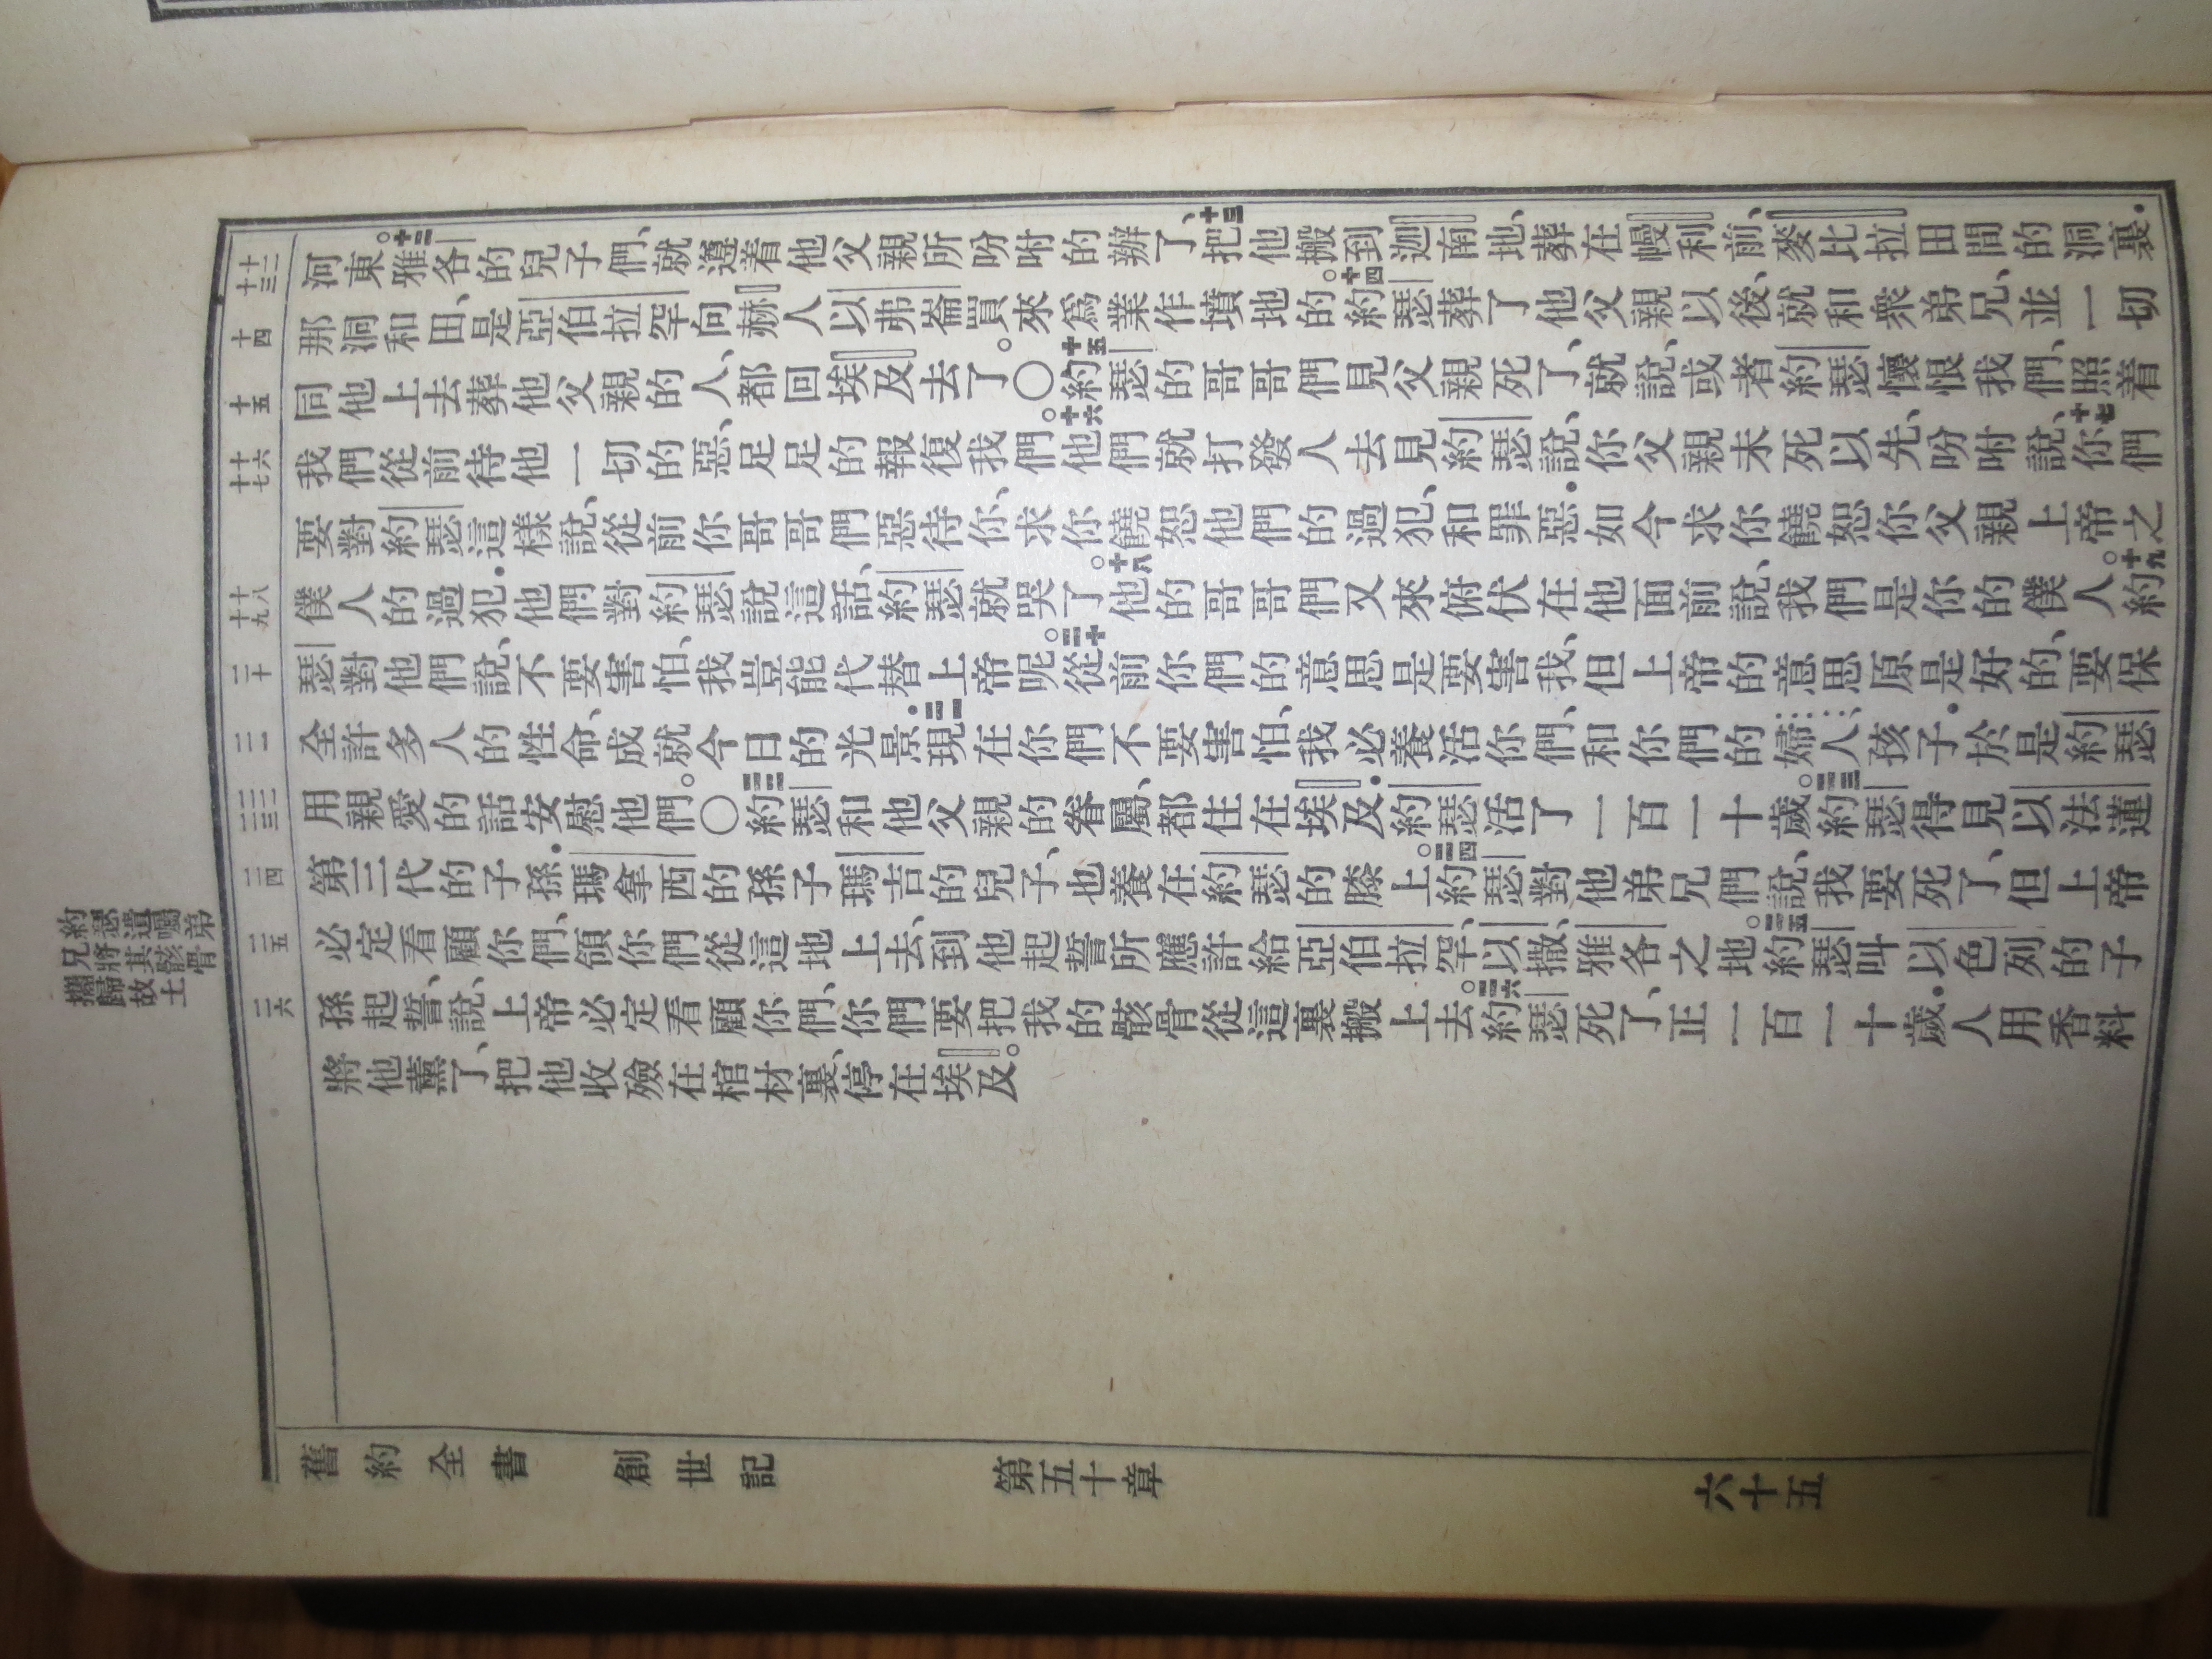 河東。十二雅各的兒子們、就遵着他父親所吩咐的辦了、十三把他搬到迦南地、葬在幔利前、麥比拉田間的洞裏．
那洞和田、是亞伯拉罕向赫人以弗崙買來爲業作墳地的。十四約瑟葬了他父親以後、就和衆弟兄、並一切
同他上去葬他父親的人、都回埃及去了。〇十五約瑟的哥哥們見父親死了、就說、或者約瑟懷恨我們、照着
我們從前待他一切的惡、足足的報復我們。十六他們就打發人去見約瑟說、你父親未死以先、吩咐說、十七你們
要對約瑟這樣說、從前你哥哥們惡待你、求你饒恕他們的過犯、和罪惡．如今求你饒恕你父親上帝之
僕人的過犯．他們對約瑟說這話、約瑟就哭了。十八他的哥哥們又來俯伏在他面前說、我們是你的僕人。十九約
瑟對他們說、不要害怕、我豈能代替上帝呢。二十從前你們的意思是要害我、但上帝的意思原是好的、要保
全許多人的性命、成就今日的光景．二一現在你們不要害怕、我必養活你們、和你們的婦人、孩子．於是約瑟
用親愛的話安慰他們。〇二二約瑟和他父親的眷屬、都住在埃及．約瑟活了一百一十歲。二三約瑟得見以法蓮
第三代的子孫．瑪拿西的孫子瑪吉的兒子、也養在約瑟的膝上。二四約瑟對他弟兄們說、我要死了、但上帝
必定看顧你們、領你們從這地上去、到他起誓所應許給亞伯拉罕、以撒、雅各之地。二五約瑟叫以色列的子
孫起誓、說、上帝必定看顧你們、你們要把我的骸骨從這裏搬上去。二六約瑟死了、正一百一十歲．人用香料
將他薰了、把他收殮在棺材裏、停在埃及。
十二
十三
十四
十五
十六
十七
十八
十九
二十
二一
二二
二三
二四
二五
二六
約瑟遺囑弟
兄將其骸骨
攜歸故土
舊約全書 創世記 第五十章 六十五